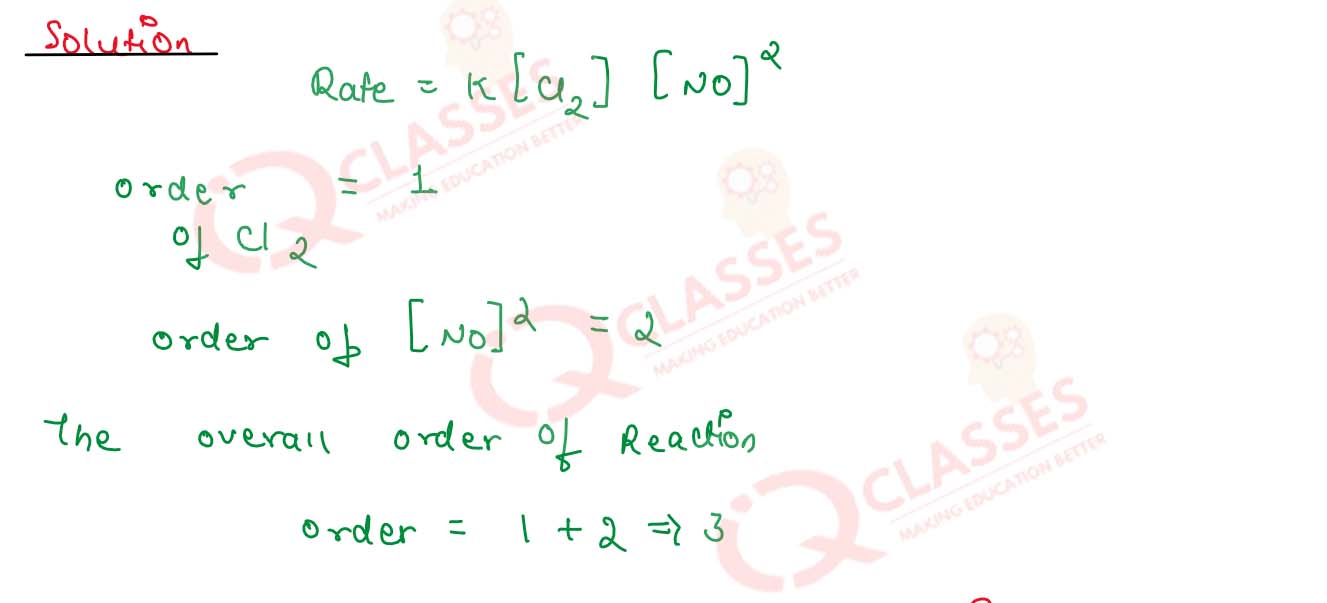 Solution
Rate = K [Cl2] [NO]²
order = 1
of Cl2
order of [NO]² = 2
The overall order of Reaction
order = 1 + 2 ⇒ 3
iQ CLASSES
MAKING EDUCATION BETTER
iQ CLASSES
MAKING EDUCATION BETTER
iQ CLASSES
MAKING EDUCATION BETTER